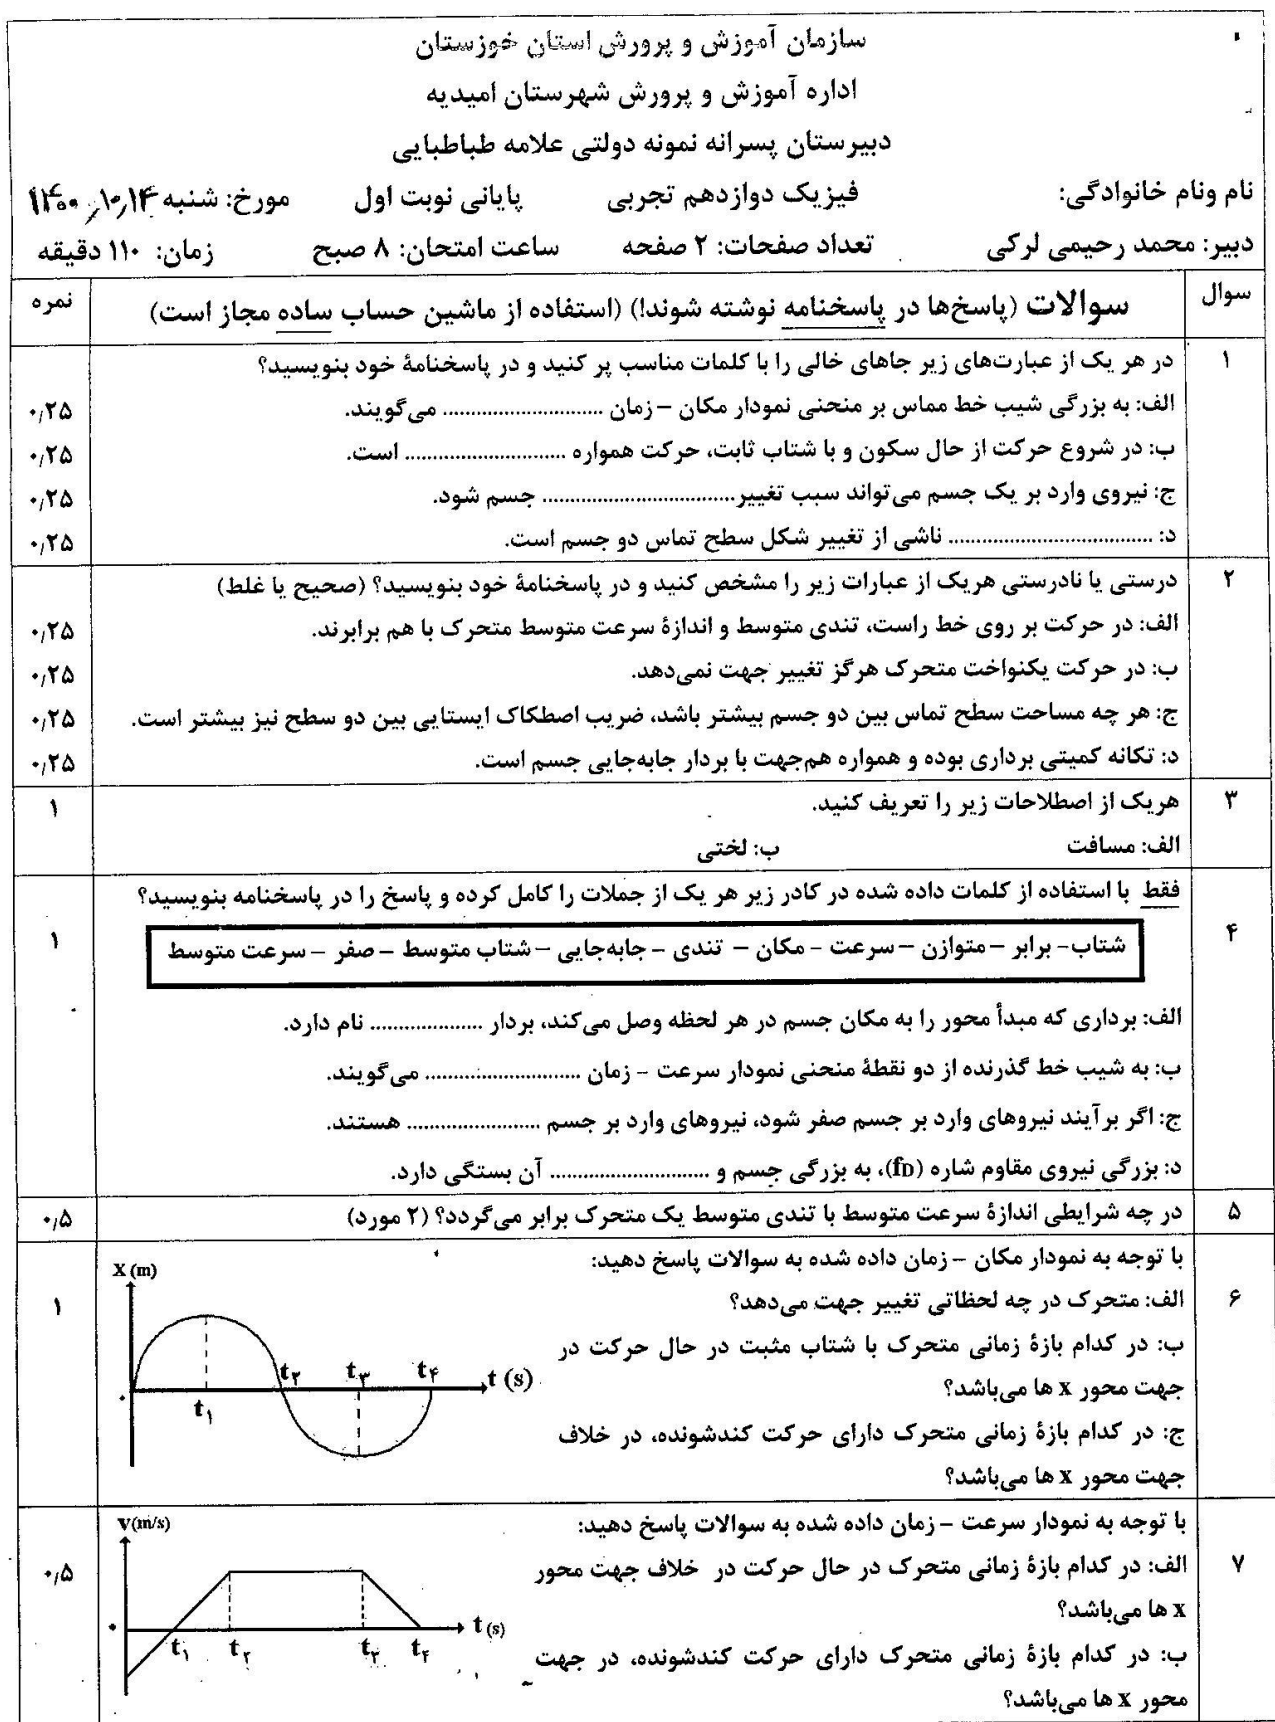 سازمان آموزش و پرورش استان خوزستان
اداره آموزش و پرورش شهرستان امیدیه
دبیرستان پسرانه نمونه دولتی علامه طباطبایی
نام ونام خانوادگی: فیزیک دوازدهم تجربی پایانی نوبت اول مورخ: شنبه ۱۴۰۰,۱۰,۱۴
دبیر: محمد رحیمی لرکی تعداد صفحات: ۲ صفحه ساعت امتحان: ۸ صبح زمان: ۱۱۰ دقیقه
سوال سوالات (پاسخ‌ها در پاسخنامه نوشته شوند!) (استفاده از ماشین حساب ساده مجاز است) نمره
۱ در هر یک از عبارت‌های زیر جاهای خالی را با کلمات مناسب پر کنید و در پاسخنامهٔ خود بنویسید؟
الف: به بزرگی شیب خط مماس بر منحنی نمودار مکان – زمان ............................. می‌گویند. ۰٫۲۵
ب: در شروع حرکت از حال سکون و با شتاب ثابت، حرکت همواره ............................. است. ۰٫۲۵
ج: نیروی وارد بر یک جسم می‌تواند سبب تغییر................................... جسم شود. ۰٫۲۵
د: ..................................... ناشی از تغییر شکل سطح تماس دو جسم است. ۰٫۲۵
۲ درستی یا نادرستی هریک از عبارات زیر را مشخص کنید و در پاسخنامهٔ خود بنویسید؟ (صحیح یا غلط)
الف: در حرکت بر روی خط راست، تندی متوسط و اندازهٔ سرعت متوسط متحرک با هم برابرند. ۰٫۲۵
ب: در حرکت یکنواخت متحرک هرگز تغییر جهت نمی‌دهد. ۰٫۲۵
ج: هر چه مساحت سطح تماس بین دو جسم بیشتر باشد، ضریب اصطکاک ایستایی بین دو سطح نیز بیشتر است. ۰٫۲۵
د: تکانه کمیتی برداری بوده و همواره هم‌جهت با بردار جابه‌جایی جسم است. ۰٫۲۵
۳ هریک از اصطلاحات زیر را تعریف کنید. ۱
الف: مسافت ب: لختی
فقط با استفاده از کلمات داده شده در کادر زیر هر یک از جملات را کامل کرده و پاسخ را در پاسخنامه بنویسید؟
۴ شتاب- برابر – متوازن – سرعت - مکان – تندی - جابه‌جایی – شتاب متوسط – صفر – سرعت متوسط ۱
الف: برداری که مبدأ محور را به مکان جسم در هر لحظه وصل می‌کند، بردار .................... نام دارد.
ب: به شیب خط گذرنده از دو نقطهٔ منحنی نمودار سرعت - زمان ............................ می‌گویند.
ج: اگر برآیند نیروهای وارد بر جسم صفر شود، نیروهای وارد بر جسم ........................ هستند.
د: بزرگی نیروی مقاوم شاره (fD)، به بزرگی جسم و ............................. آن بستگی دارد.
۵ در چه شرایطی اندازهٔ سرعت متوسط با تندی متوسط یک متحرک برابر می‌گردد؟ (۲ مورد) ۰٫۵
با توجه به نمودار مکان – زمان داده شده به سوالات پاسخ دهید:
۶ الف: متحرک در چه لحظاتی تغییر جهت می‌دهد؟ ۱
ب: در کدام بازهٔ زمانی متحرک با شتاب مثبت در حال حرکت در
جهت محور x ها می‌باشد؟
ج: در کدام بازهٔ زمانی متحرک دارای حرکت کندشونده، در خلاف
جهت محور x ها می‌باشد؟
X (m)
t۲ t۳ t۴ t (s)
۰ t۱
با توجه به نمودار سرعت – زمان داده شده به سوالات پاسخ دهید:
۷ الف: در کدام بازهٔ زمانی متحرک در حال حرکت در خلاف جهت محور ۰٫۵
x ها می‌باشد؟
ب: در کدام بازهٔ زمانی متحرک دارای حرکت کندشونده، در جهت
محور x ها می‌باشد؟
V(m/s)
۰ t (s)
t۱ t۲ t۳ t۴